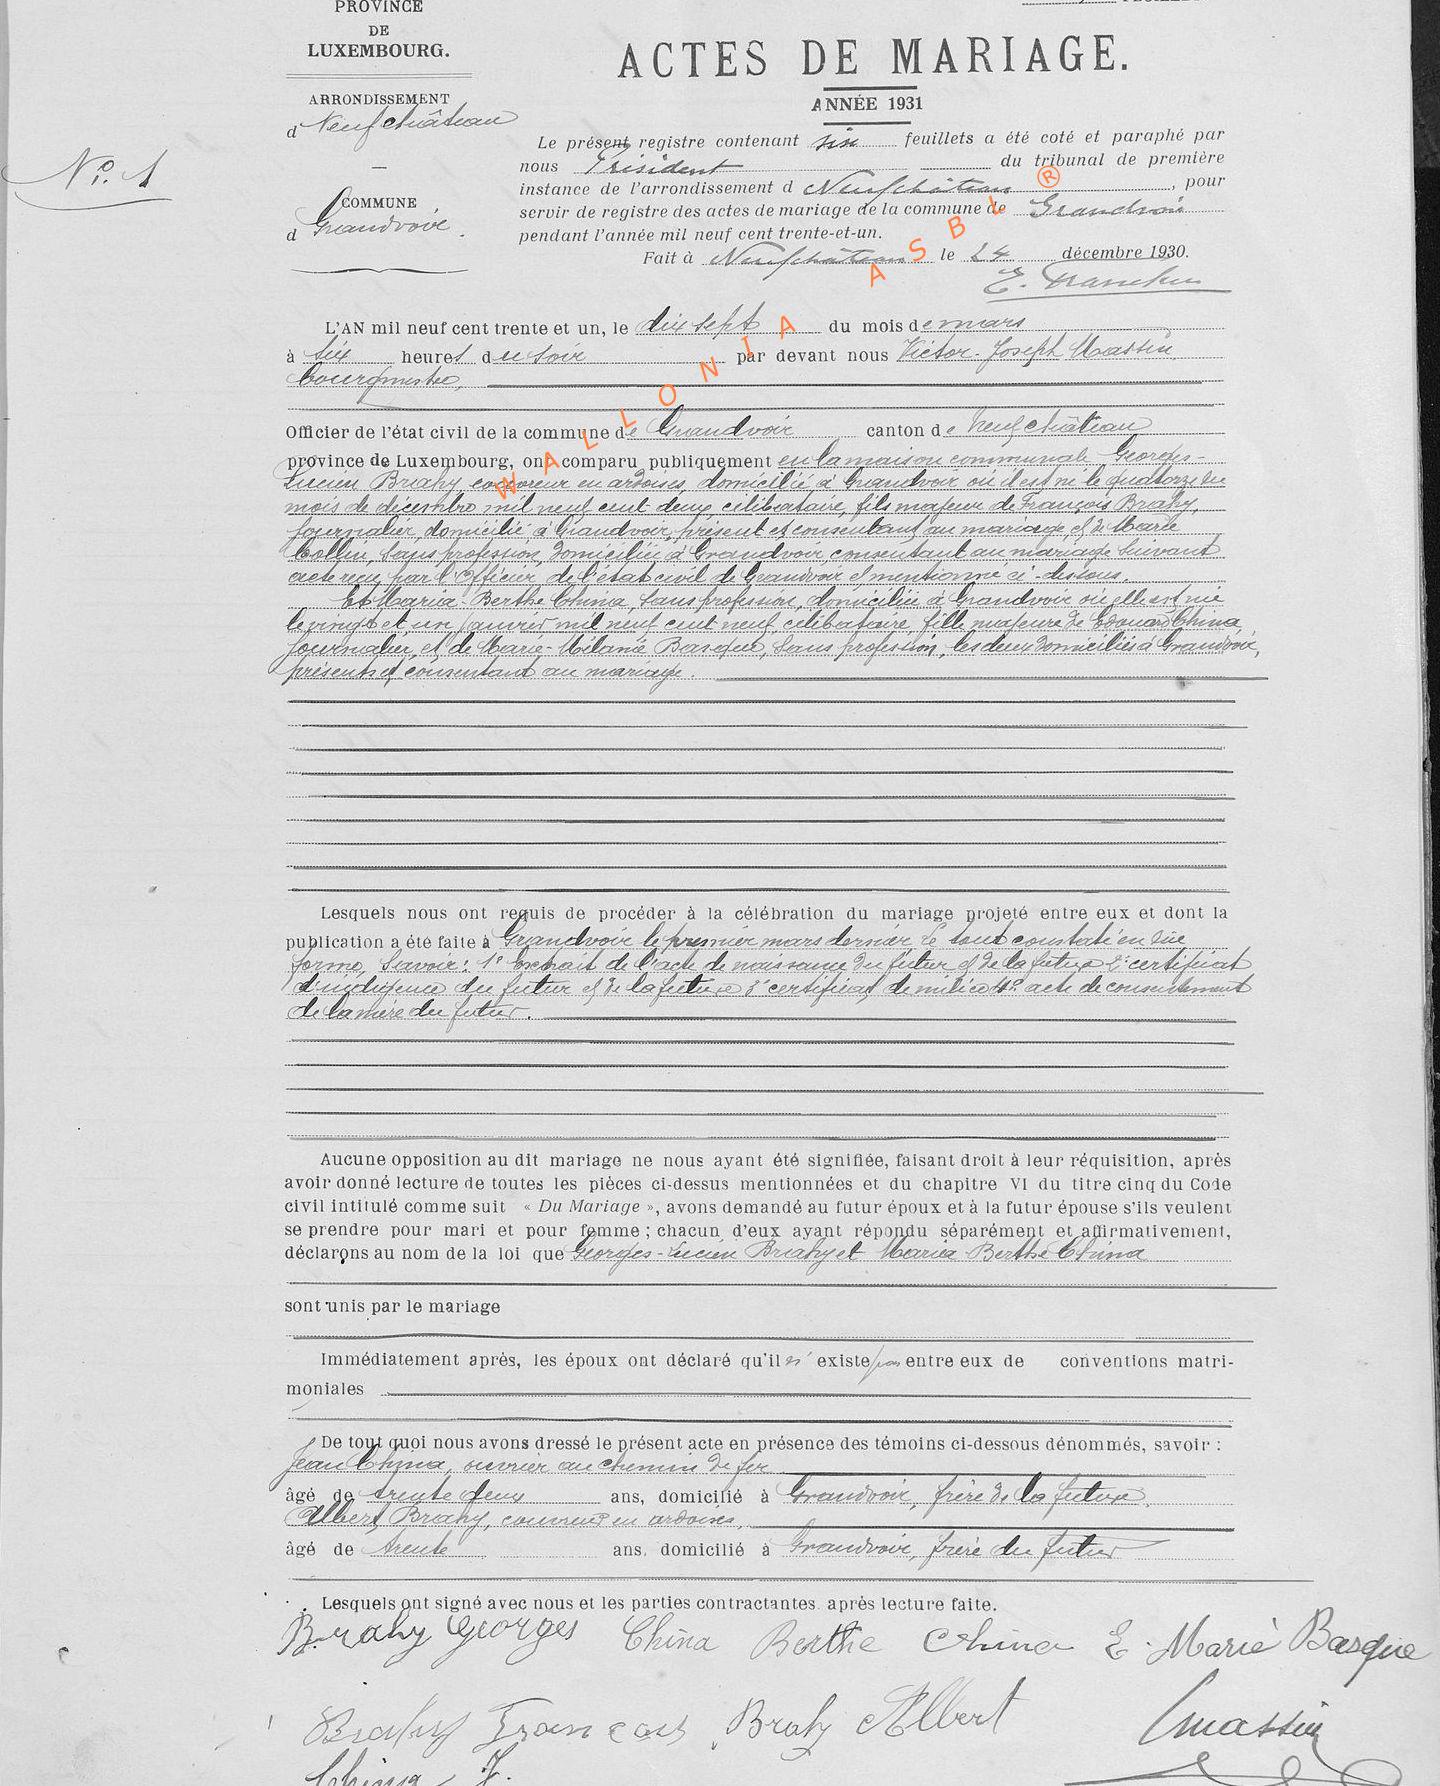 PROVINCE
DE
LUXEMBOURG.
ARRONDISSEMENT
d Neufchâteau
COMMUNE
d Grandvoir.
No. 1
ACTES DE MARIAGE.
ANNÉE 1931
Le présent registre contenant six feuillets a été coté et paraphé par
nous Président du tribunal de première
instance de l'arrondissement d Neufchâteau, pour
servir de registre des actes de mariage de la commune de Grandvoir
pendant l'année mil neuf cent trente-et-un.
Fait à Neufchâteau le 24 décembre 1930.
WALLONIA ASBL ®
L'AN mil neuf cent trente et un, le dix sept du mois de mars
à six heures du soir par devant nous Victor-Joseph Massin
bourgmestre,
Officier de l'état civil de la commune de Grandvoir canton de Neufchâteau
province de Luxembourg, ont comparu publiquement en la maison communale Georges-
Lucien Brahy couvreur en ardoises, domicilié à Grandvoir où il est né le quatorze du
mois de décembre mil neuf cent deux, célibataire, fils majeur de François Brahy,
journalier, domicilié à Grandvoir, présent et consentant au mariage, et de Marie
Collin, sans profession, domiciliée à Grandvoir consentant au mariage suivant
acte reçu par l'Officier de l'état civil de Grandvoir et mentionné ci-dessous.
Et Maria-Berthe China, sans profession, domiciliée à Grandvoir où elle est née
le vingt et un janvier mil neuf cent neuf, célibataire, fille majeure de Edouard China,
journalier, et de Marie-Mélanie Basque, sans profession, les deux domiciliés à Grandvoir,
présents et consentant au mariage.
Lesquels nous ont requis de procéder à la célébration du mariage projeté entre eux et dont la
publication a été faite à Grandvoir le premier mars dernier Le tout constaté en due
forme, savoir: 1° Extrait de l'acte de naissance du futur et de la future 2° certificat
d'indigence du futur et de la future 3° certificat de milice 4° acte de consentement
de la mère du futur.
Aucune opposition au dit mariage ne nous ayant été signifiée, faisant droit à leur réquisition, après
avoir donné lecture de toutes les pièces ci-dessus mentionnées et du chapitre VI du titre cinq du Code
civil intitulé comme suit « Du Mariage », avons demandé au futur époux et à la future épouse s'ils veulent
se prendre pour mari et pour femme ; chacun d'eux ayant répondu séparément et affirmativement,
déclarons au nom de la loi que Georges-Lucien Brahy et Maria Berthe China
sont unis par le mariage
Immédiatement après, les époux ont déclaré qu'il n'existe pas entre eux de conventions matri-
moniales
De tout quoi nous avons dressé le présent acte en présence des témoins ci-dessous dénommés, savoir :
Jean China, ouvrier au chemin de fer
âgé de trente deux ans, domicilié à Grandvoir, frère de la future.
Albert Brahy, couvreur en ardoises,
âgé de trente ans, domicilié à Grandvoir, frère du futur
Lesquels ont signé avec nous et les parties contractantes après lecture faite.
Brahy Georges China Berthe China E. Marie Basque
Brahy François Brahy Albert Massin
China J.